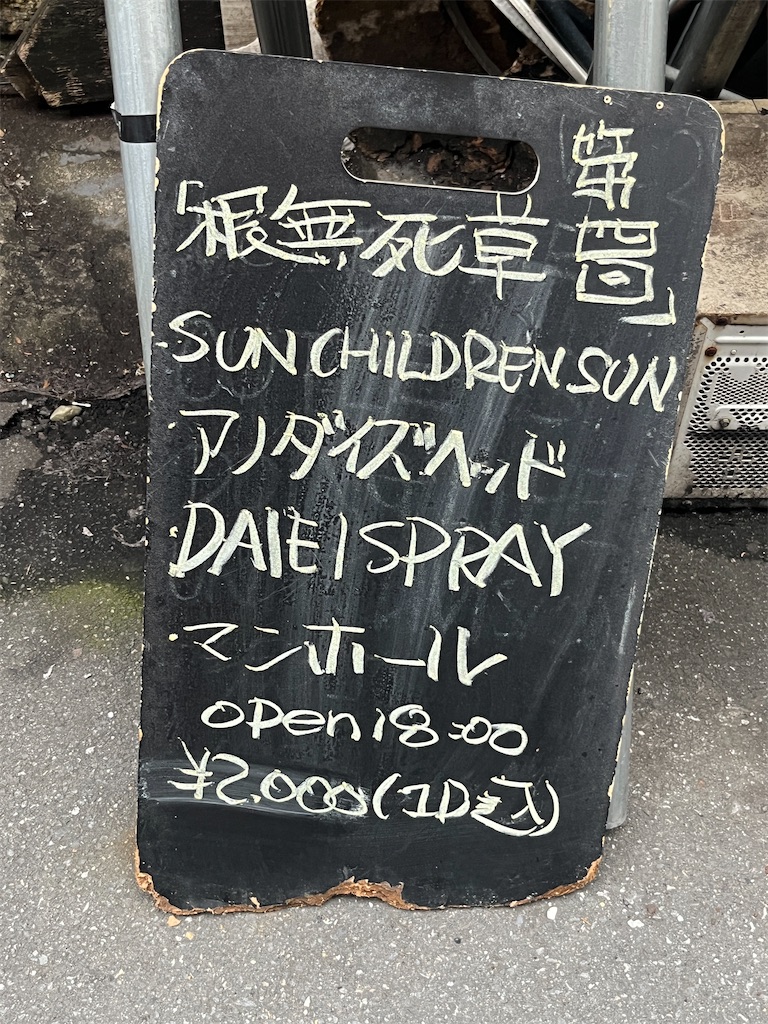 「根無死草 第四回」
・SUN CHILDREN SUN
・アノダイズヘッド
・DAIEI SPRAY
・マンホール
open 18:00
¥2,000(1D込)